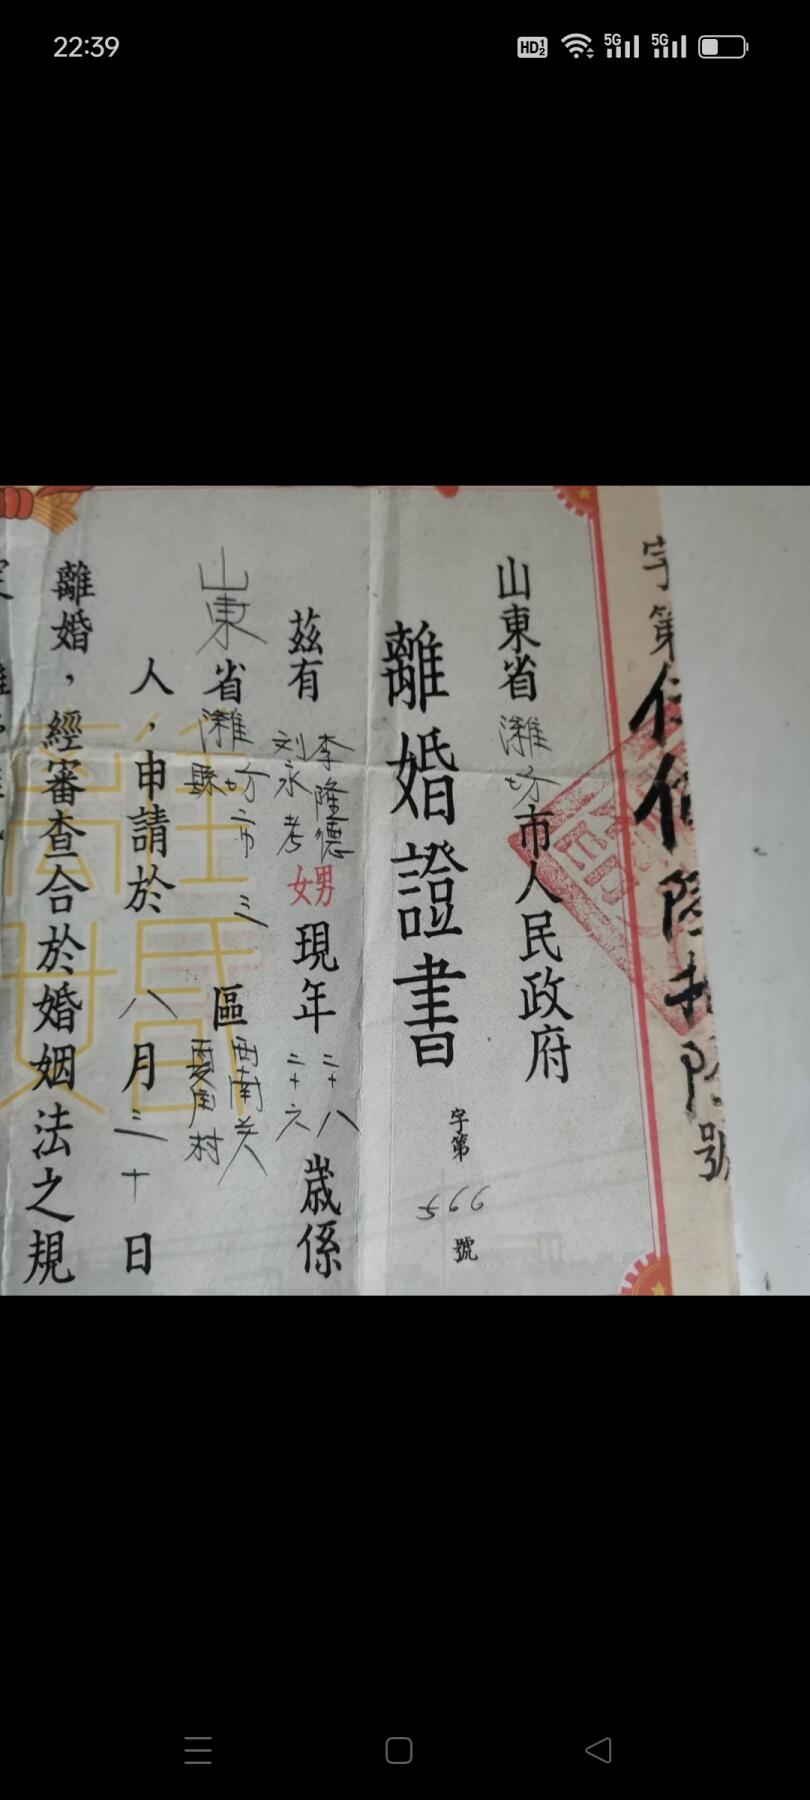 22:39
字第伍佰陸拾陸號
山東省濰坊市人民政府
離婚證書
字第566號
茲有李隆德男現年二十八歲係
刘永考女二十六
山東省濰坊市三區西南关
濰縣
村
人，申請於八月三十日
離婚，經審查合於婚姻法之規